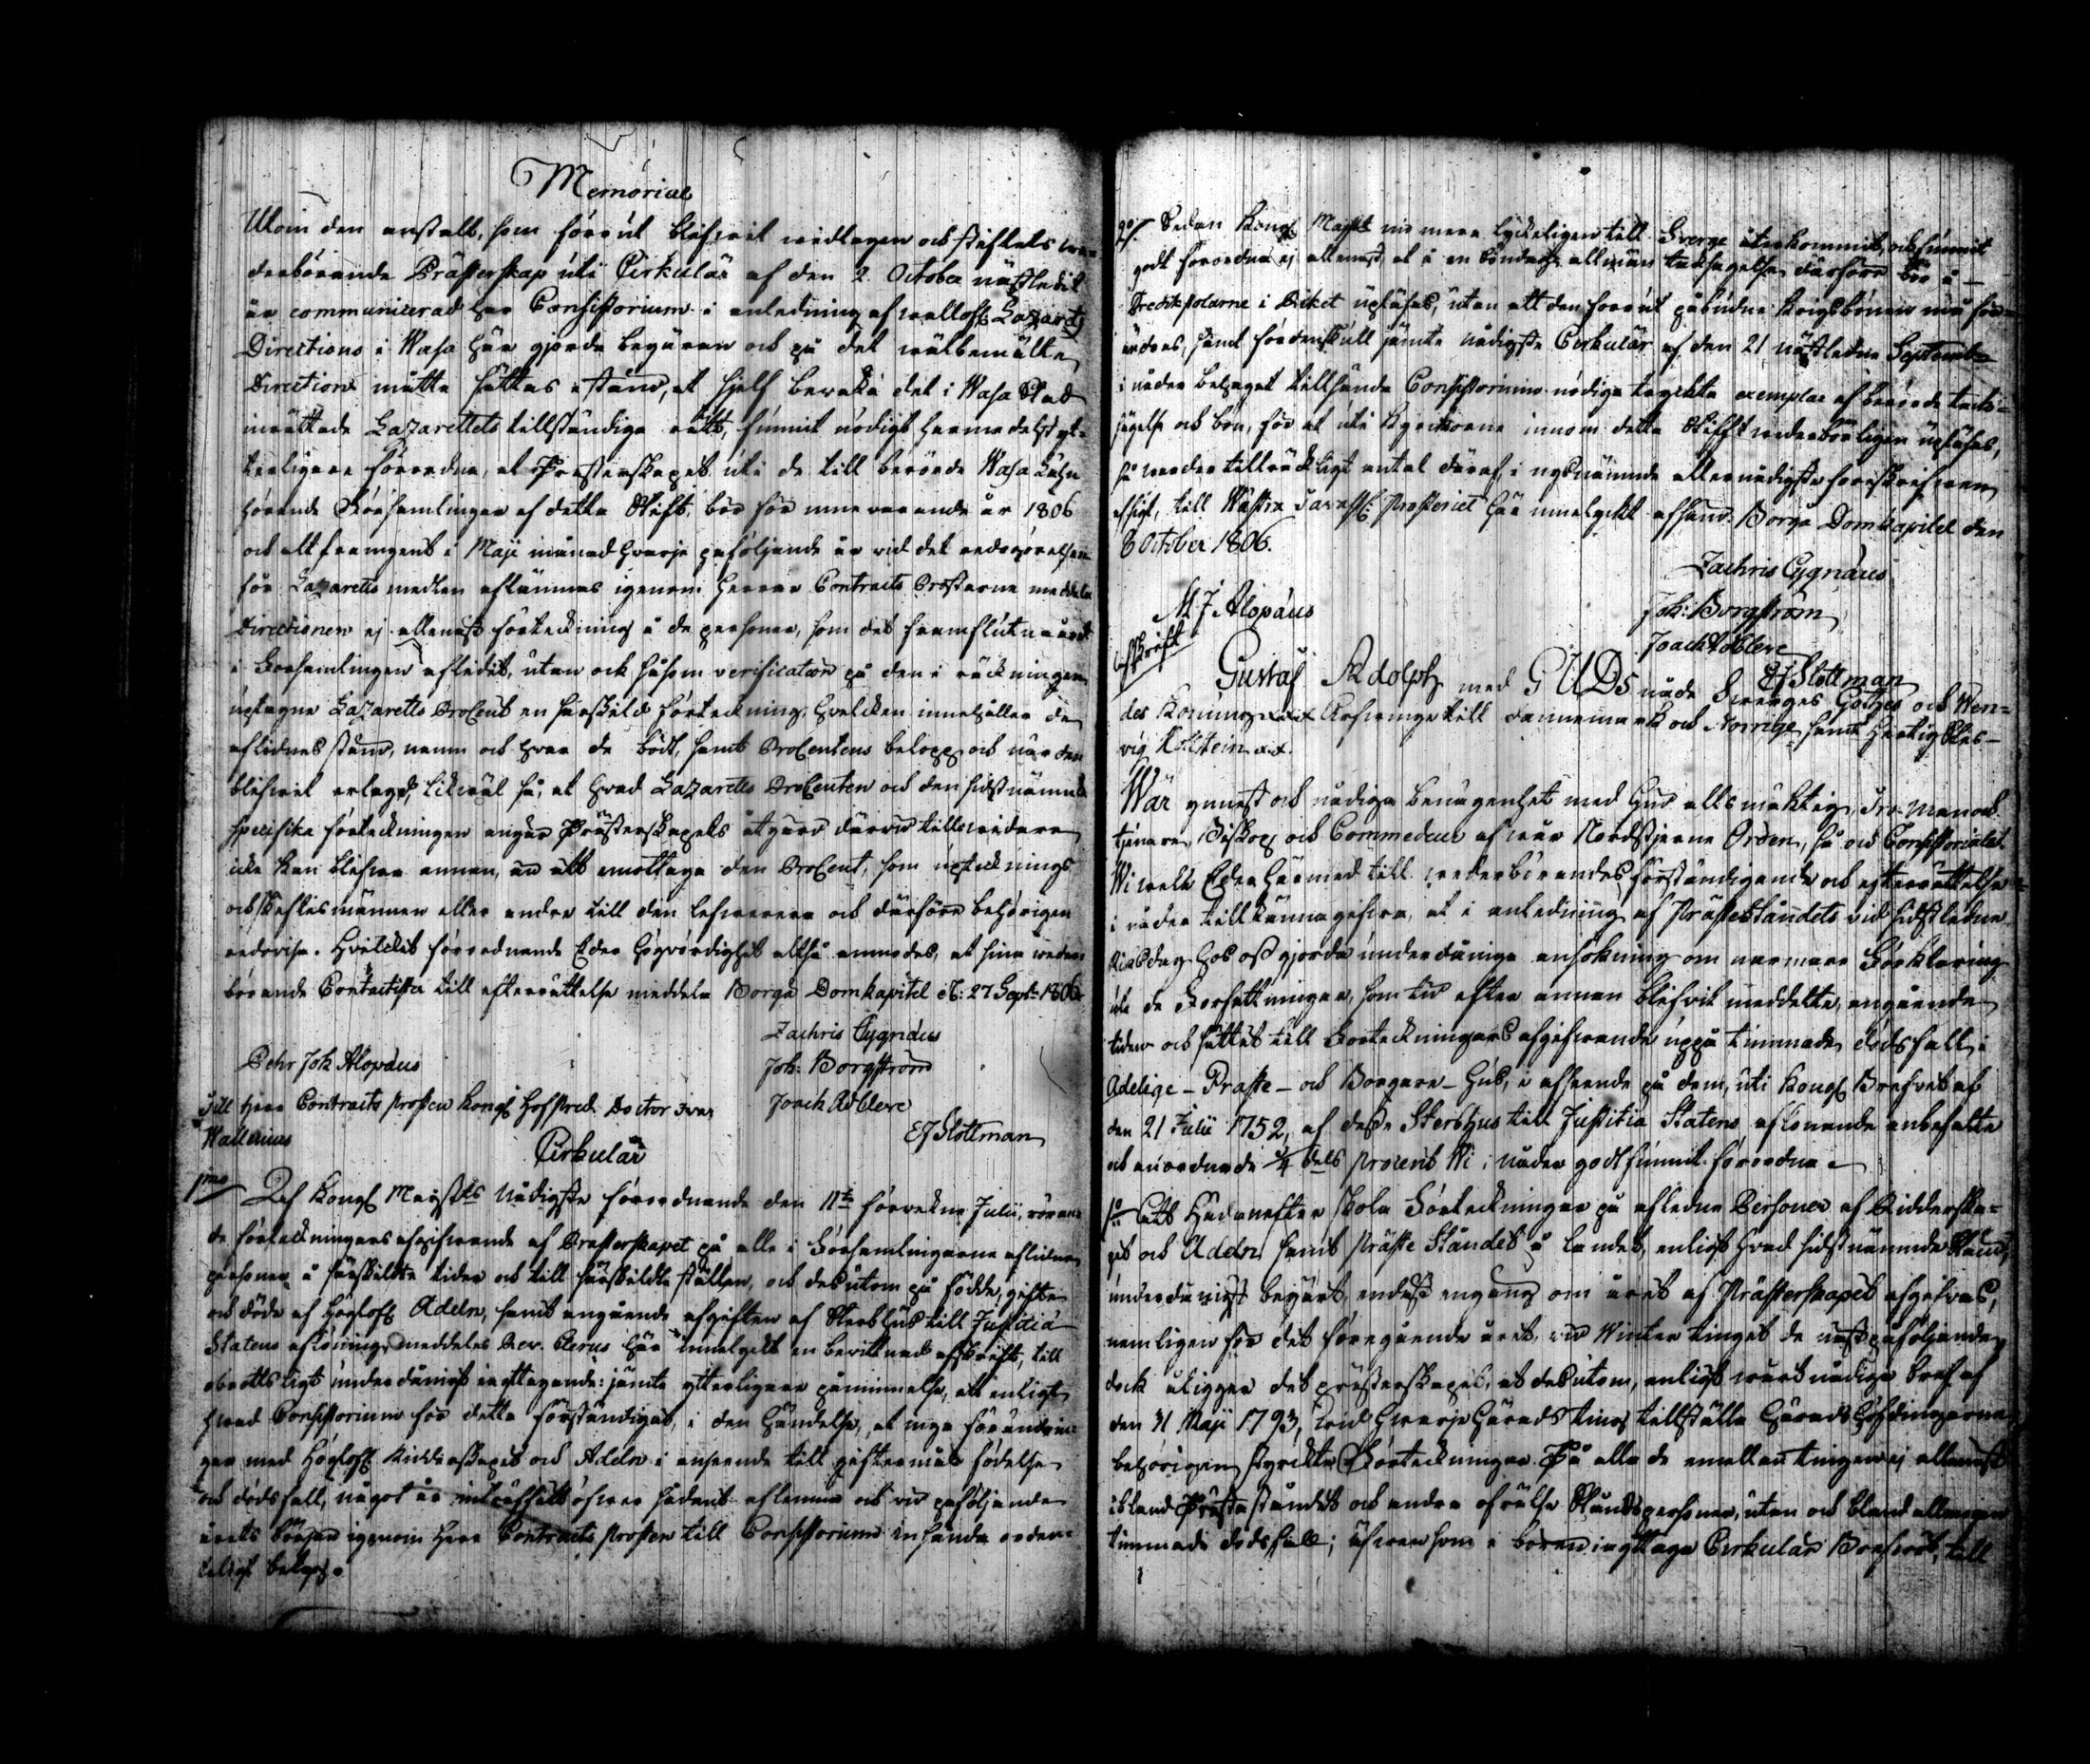 Memorial
Utom den anstalt, som förrut blifwit widtagen och Stiftets we-
derbörande Prästerskap uti Cirkulär af den 2 October nästledit
är communicerad har Consistorium i anledning af wällofl. Lazaretts
Directions i Wasa här gjorde begäran och på det wälbemälte
Direction måtte sättas istånd, at sjelf bewaka det i Wasa Stad
inrättade Lazarettets tillständiga rätt, funnit nödigt härmedelst yt-
terligare förordna, at Presterskapet uti de till berörde Wasa Lähn
hörande Församlingar af detta Stift, bör för innewarande år 1806
och allt framgent i Maji månad hwarje påföljande år vid det redogörelsen
för Lazaretts medlen aflämnas igenom Herrar Contracts Prostarne meddela
Directionen ej allenast förteckning å de personer, som det framflutna året
i Församlingen aflidit, utan ock såsom verification på den i räckningen
uptagne Lazaretts ProCent en särskild förteckning, hvilcken innehåller de
aflidnes stånd, namn och hvar de bodt, samt ProCentens belopp och når den
blifwit erlagd, likwäl så, at hvad Lazaretts ProCenten och den sidstnämnde
specifika förteckningen angår Prästerskapets åtgärd därwid tillwidare
icke kan blifwa annan, än att emottaga den ProCent, som upteknings
och skiftesmännen eller andre till den lefwerera och därföre behörigen
redovisa. Hvilcket förordnande Eder Högwördighet altså anmodes, at sina weder-
börande Contractister till efterrättelse meddela Borgå Domkapitel d: 27 Sept. 1806
Zachris Cygnæus
Pehr Joh Alopæus Joh: Borgström
Till Herr Contracts Prosten Kongl Hofpred. Doctor Ivar Joach Ad Cleve
Wallenius EJ Slottman
Cirkulär
1mo Af Kongl Maj:sts Nådigste förordnande den 11te förwekne Julii, röran-
de förteckningars afgifwande af Presterskapet på alle i Församlingarne aflidne
personer å särskildte tider och till särskildte ställen, och desutom på födde, gifte
och döde af Höglofl Adeln, samt angående afgiften af Sterbhus till Justitiæ
Statens aflöning, meddelas Rev. Clerus här innelyckt en bewittnad afskrift, till
obrottsligt underdånigt iagttagande: jämte ytterligare påminnelse, att enligt
hwad Consistorium för detta förständigat, i den händelse, at inga förändrin-
gar med Höglofl Ridderskapet och Adeln i anseende till giftermål födelse
och dödsfall, något år inträffatt öfwer sådant aflemna och vid påföljande
årets början igenom Herr Contracts Prosten till Consistorium insända orden-
teligt bewis.
2o/. Sedan Kongl Maj:st nu mera lyckeligen till Swerge återkommit, och funnit
godt förordna ej allenast at å en Söndag allmän tacksägelse därföre bör å
Predikstolarne i Riket upläsas, utan att den förrut påbudne Krigsbönen må för-
ändras, samt fördenskull jämte nådigste Cirkulär af den 21 nästledne Septemb:
i nåder behaget tillsända Consistorium nödige tryckte exemplar af berörde tack-
sägelse och bön, för at uti Kyrckorne innom detta Stifft wederbörligen upläses,
så warder tillräckligt antal däraf, i nyssnämnde allernådigste föreskrifwen
afsigt, till Wästra Tavastl: Prosteriet här innelyckt afsänd. Borgå Domkapitel den
8 October 1806.
Zachris Cygnæus
M J Alopæus Joh: Borgström
Joach Ad Cleve
afskrift EJ Slottman
Gustaf Adolph med GUDs nåde Sweriges Göthes och Wen-
des Konung Arfwinge till Dannemark och Norrige, samt Hertig Sles-
vig Holstein
Wår ynnest och nådiga benägenhet med Gud alsmäktig, Tro-Man och
tjenare, Biskop och Commedeur af wår Nordstjerne Orden, så ock Consistoriales.
Wi wele Eder härmed till wederbörandes förständigande och efterrättelse
i nåder tillkännagifwa, at i anledning af Präste Ståndets vid sidstledne
Riksdag hos oss gjorda underdåniga ansökning om närmare Förklaring
uti de Författningar, som tid efter annan blifwit meddelte, angående
tiden och sättet till Förteckningars afgifwande uppå timmade dödsfall i
Adelige- Präste- och Borgare- Hus, i afseende på dem, uti Kongl Brefwet af
den 21 Julii 1752, af desse Sterbhus till Justitiæ Statens aflönande anbefalte
och anordnade 1/4 dels procent Wi i nåder godtfunnit förordna
1o Att Hädanefter skola Förteckningar på afledne Personer af Ridderska-
pet och Adeln samt Präste Ståndet å landet, enligt hvad sidstnämnde Stånd
underdånigst begärt, endast engång om året af Prästerskapet afgifvas,
nemligen för det föregående året, vid Winter tinget de näst påföljande,
dock åligger det prästerskapet, at desutom, enligt wårt nådiga bref af
den 31 Maji 1793, wid hwarje Härads ting tillställa Häradshöfdingarne
behörigen styrckte Förteckningar På alla de emellan tingen ej allenast
ibland Präste ståndet och andre ofrälse Ståndspersoner, utan och bland allmogen
timmade dödsfall; äfwensom i bören iagttaga Cirkulär Brefwet, till